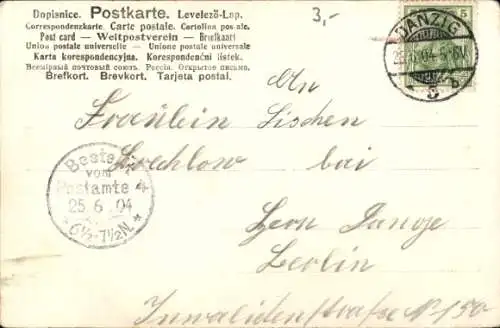 Dopisnice. Postkarte. Levelező-Lap.
Correspondenzkarte. Carte postale. Cartolina postale.
Post card — Weltpostverein — Brefkaart
Union postale universelle — Unione postale universale
Karta korespondencyjna. Korespondenční lístek.
Всемірный почтовый союз. Россія. Открытое письмо.
Brefkort. Brevkort. Tarjeta postal.
3,-
5
DANZIG
5
An
Fräulein Lischen
Strechlow bei
Herrn Lange
Berlin
Invalidenstraße No 150
Bestellt
vom
Postamte 4
25 6 04
6½-7½N.